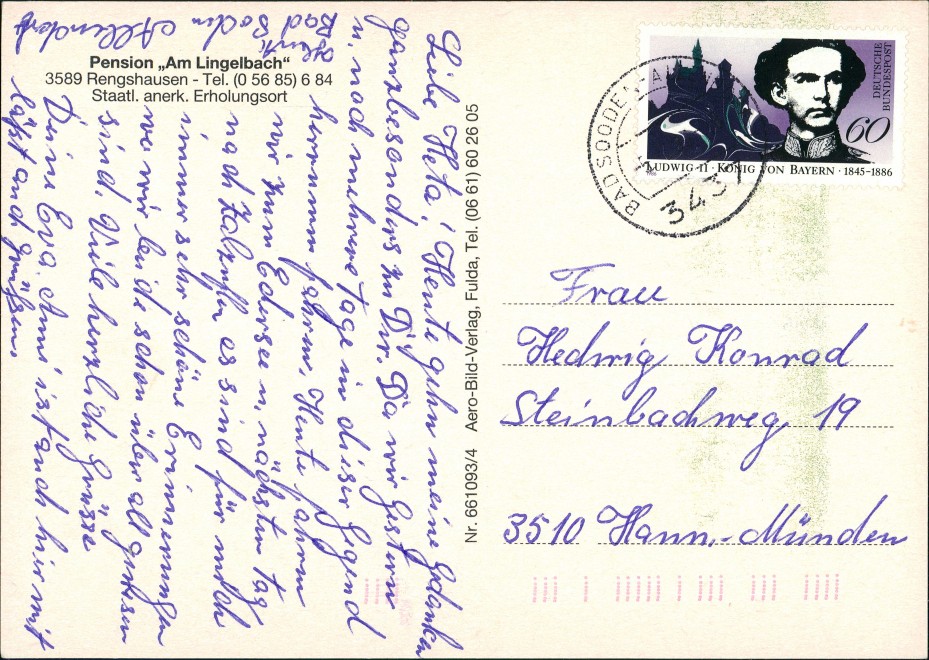 Pension „Am Lingelbach“
3589 Rengshausen - Tel. (0 56 85) 6 84
Staatl. anerk. Erholungsort
Liebe Heta! Heute gehn meine Gedanken
ganz besonders zu Dir. Da wir gestern
u. noch mehrere Tage in dieser Gegend
herumm fahren, Heute fahren
wir zum Edersee u. nächsten Tag
nach es sind für mich
immer sehr schöne Erinnerungen
wo wir beide schon überall gewesen
sind. Viele herzliche Grüsse
Deine Eva. Arno ist auch hier mit
läßt auch grüßen.
Bad Soden
Allendorf
Nr. 661093/4 Aero-Bild-Verlag, Fulda, Tel. (06 61) 60 26 05
DEUTSCHE
BUNDESPOST
60
LUDWIG II · KÖNIG VON BAYERN · 1845–1886
BAD SOODEN-AL
3437
Frau
Hedwig Konrad
Steinbachweg 19
3510 Hann.-Münden